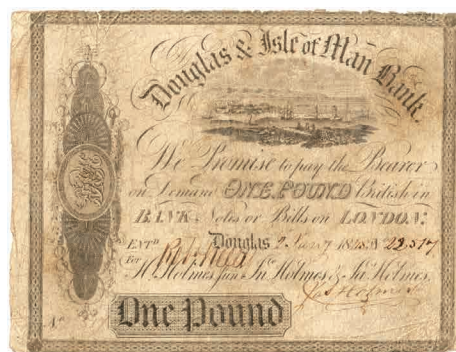 Douglas & Isle of Man Bank.
We Promise to pay the Bearer
on Demand ONE POUND British in
BANK Notes or Bills on LONDON.
ENTD Douglas
For H. Holmes junr Jno Holmes & Jas Holmes.
Jas Holmes
No One Pound